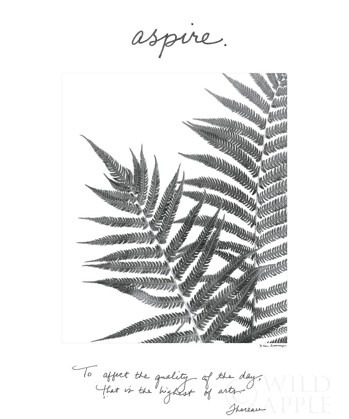 aspire.
To affect the quality of the day,
that is the highest of arts.
Thoreau
WILD
APPLE